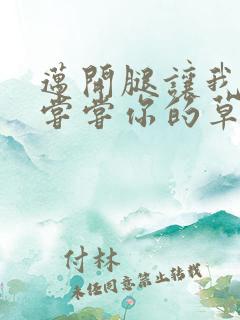 邁開腿讓我
嘗嘗你的草
付林
未经同意禁止转载